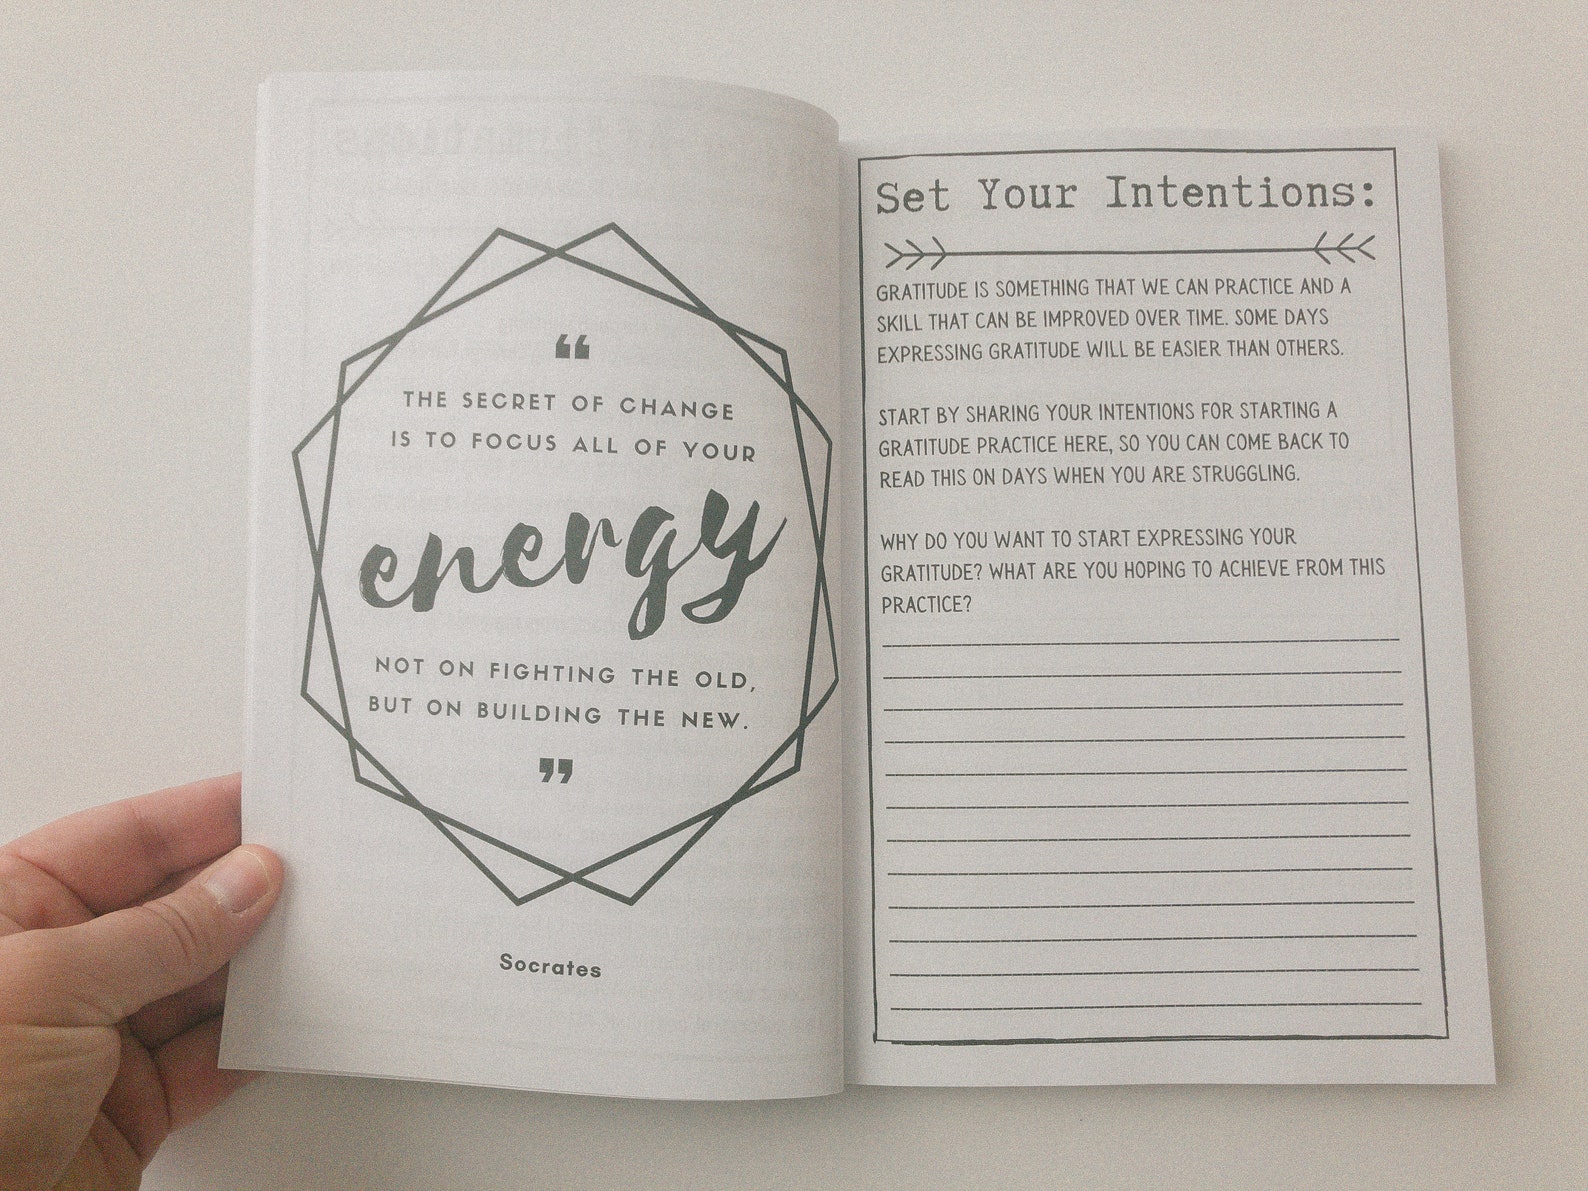 “
THE SECRET OF CHANGE
IS TO FOCUS ALL OF YOUR
energy
NOT ON FIGHTING THE OLD,
BUT ON BUILDING THE NEW.
”
Socrates
Set Your Intentions:
GRATITUDE IS SOMETHING THAT WE CAN PRACTICE AND A
SKILL THAT CAN BE IMPROVED OVER TIME. SOME DAYS
EXPRESSING GRATITUDE WILL BE EASIER THAN OTHERS.
START BY SHARING YOUR INTENTIONS FOR STARTING A
GRATITUDE PRACTICE HERE, SO YOU CAN COME BACK TO
READ THIS ON DAYS WHEN YOU ARE STRUGGLING.
WHY DO YOU WANT TO START EXPRESSING YOUR
GRATITUDE? WHAT ARE YOU HOPING TO ACHIEVE FROM THIS
PRACTICE?